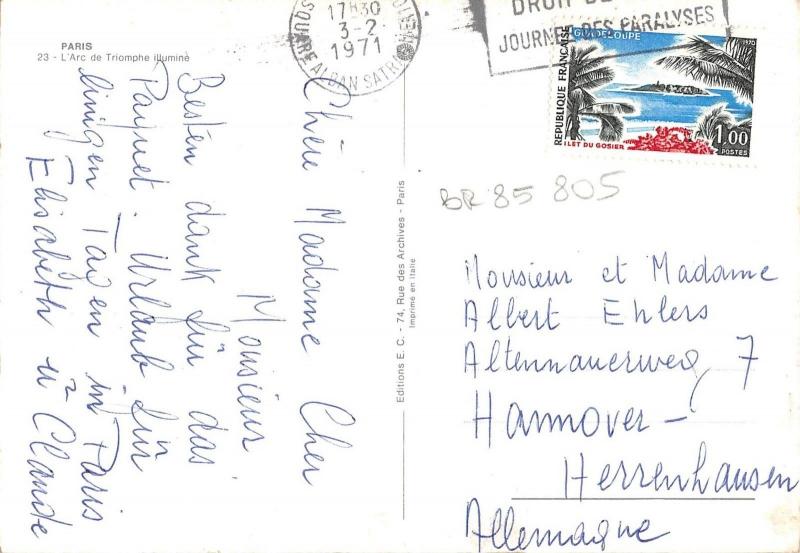 PARIS
23 - L'Arc de Triomphe illuminé
Chère Madame Cher
Monsieur
Besten dank für das
Paquet. Urlaub für
einigen Tagen in Paris
Elisabeth u Claude
Editions E. C. - 74, Rue des Archives - Paris
Imprimé en Italie
17H30
3-2
1971
SQUARE ALBAN SATRAGNE
DROIT
JOURNEE DES PARALYSES
GUADELOUPE
1970
REPUBLIQUE FRANÇAISE
ILET DU GOSIER
1,00
POSTES
BR 85 805
Monsieur et Madame
Albert Ehlers
Altennauerweg 7
Hannover-
Herrenhausen
Allemagne